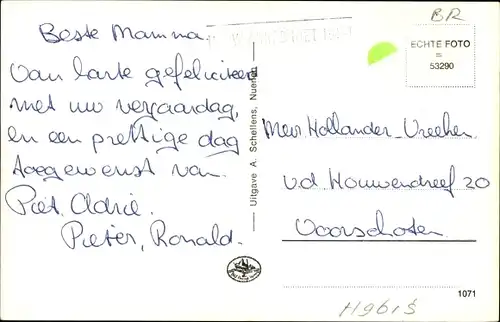 Beste Mamma.
Van harte gefeliciteerd
met uw verjaardag,
en een prettige dag
toegewenst van
Piet. Adrie.
Pieter, Ronald.
Uitgave A. Schellens, Nuenen
BR
ECHTE FOTO
=
53290
Mevr. Hollander-Vreeken
v.d. Houwendreef 20
Voorschoten
1071